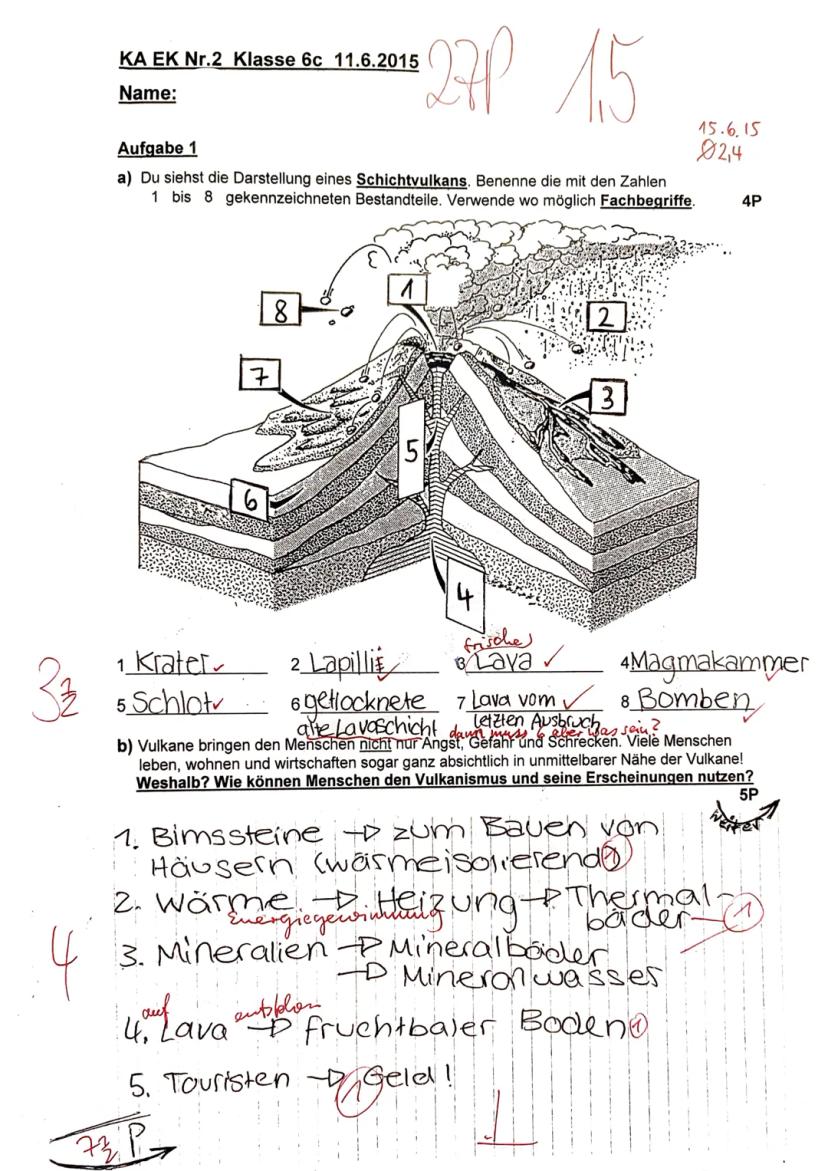 KA EK Nr.2 Klasse 6c 11.6.2015
27P 1,5
Name:
15.6.15
Ø2,4
Aufgabe 1
a) Du siehst die Darstellung eines Schichtvulkans. Benenne die mit den Zahlen
1 bis 8 gekennzeichneten Bestandteile. Verwende wo möglich Fachbegriffe. 4P
1
8
2
7
3
5
6
4
frische
1 Krater 2 Lapilli 3 Lava 4 Magmakammer
3 1/2
5 Schlot 6 getrocknete 7 Lava vom 8 Bomben
alte Lavaschicht letzten Ausbruch
dann muss 6 aber was sein?
b) Vulkane bringen den Menschen nicht nur Angst, Gefahr und Schrecken. Viele Menschen
leben, wohnen und wirtschaften sogar ganz absichtlich in unmittelbarer Nähe der Vulkane!
Weshalb? Wie können Menschen den Vulkanismus und seine Erscheinungen nutzen?
5P
weiter
1. Bimssteine → zum Bauen von
Häusern (wärmeisolierend) 1
2. Wärme → Heizung → Thermal-
bäder 1
Energiegewinnung
4
3. Mineralien → Mineralbäder
→ Mineralwasser
auf
4. Lava → fruchtbarer Boden 1
5. Touristen → Geld! 1
7 1/2 P